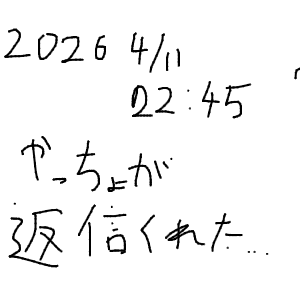 2026 4/11
22:45
やっちょが
返信くれた...